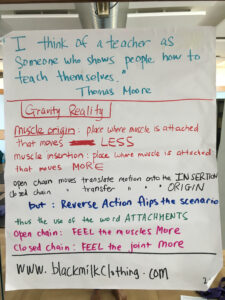 I think of a teacher as
someone who shows people how to
teach themselves."
Thomas Moore
Gravity Reality
muscle origin: place where muscle is attached
that moves LESS
muscle insertion: place where muscle is attached
that moves MORE
open chain moves translate motion onto the INSERTION
closed chain " transfer " " " ORIGIN
but: Reverse Action flips the scenario
thus the use of the word ATTACHMENTS
Open chain: FEEL the muscles More
Closed chain: FEEL the joint more
www.blackmilkclothing.com
2